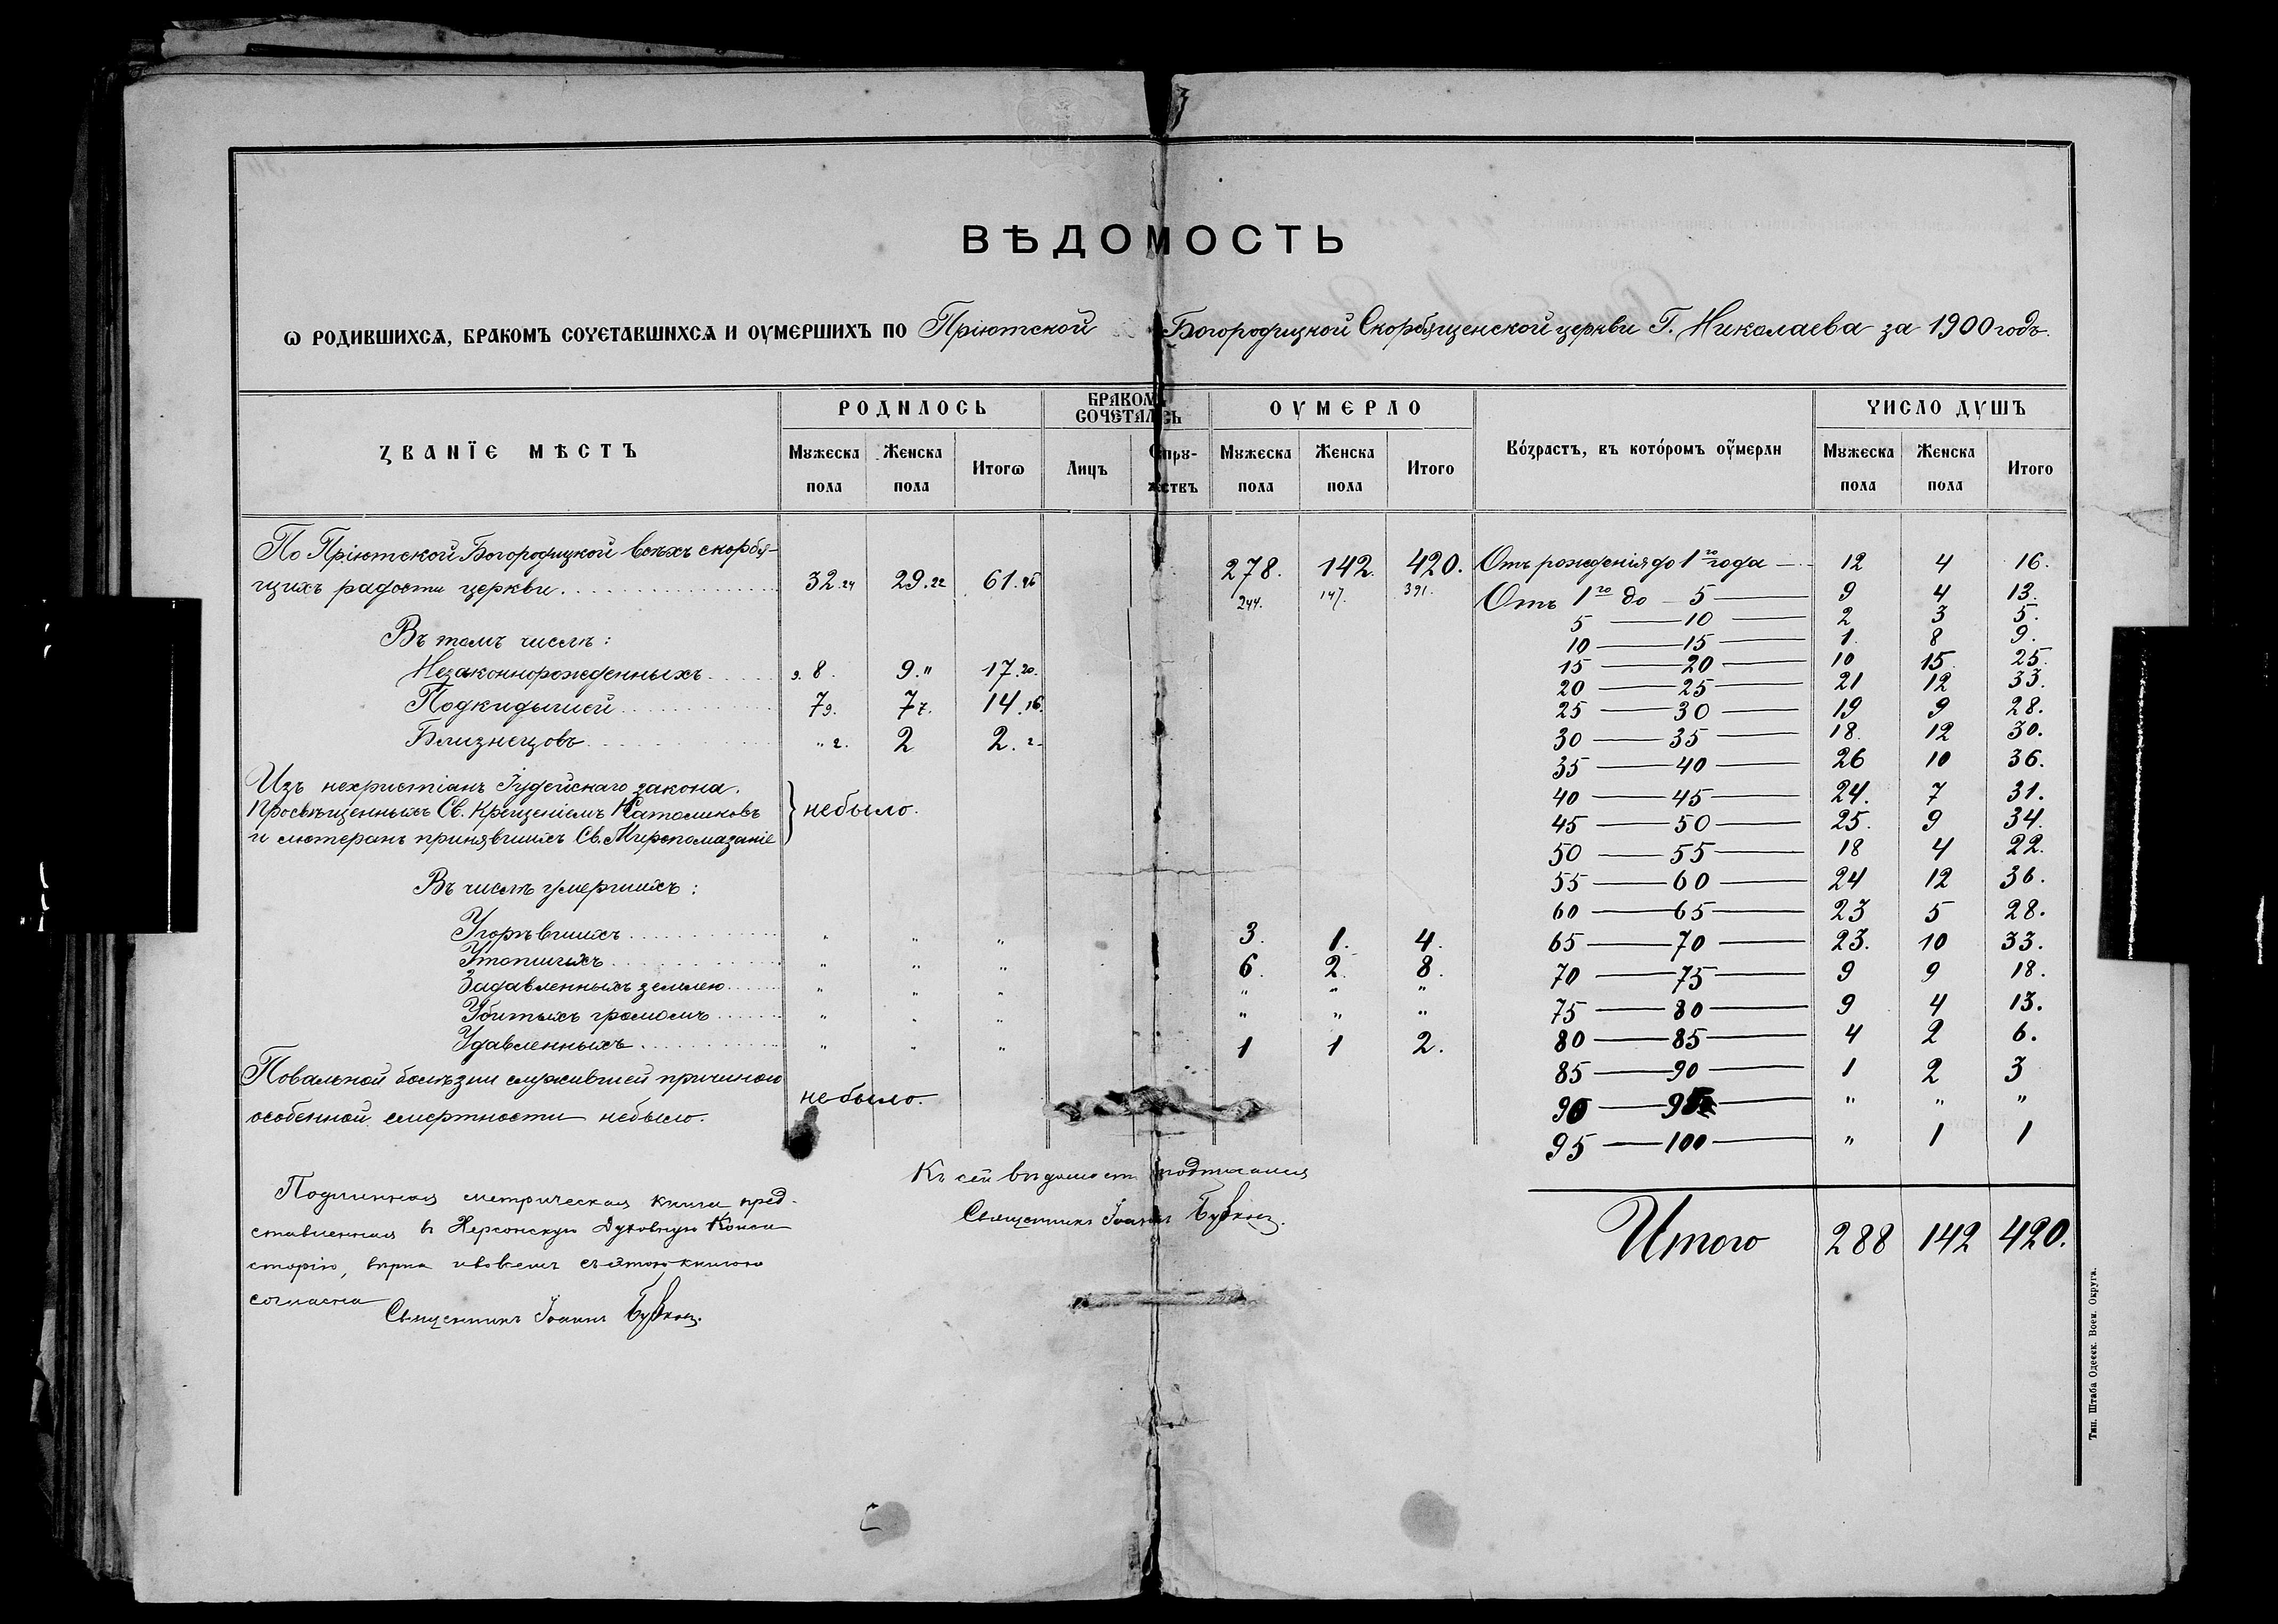 ВѢДОМОСТЬ
Ѡ РОДИВШИХСѦ, БРАКОМЪ СОЧЕТАВШИХСѦ И ОУМЕРШИХЪ ПО Пріютской Богородицкой Скорбященской церкви Г. Николаева за 1900 годъ.
ЗВАНЇЕ МѢСТЪ
РОДИЛОСЬ
БРАКОМЪ СОЧЕТАЛИСЬ
ОУМЕРЛО
Во́зрастъ, въ кото́ромъ оу҆́мерли
ЧИСЛО ДУШЪ
Мужеска пола Женска пола Итогѡ Лицъ Супру-жествъ Мужеска пола Женска пола Итого Мужеска пола Женска пола Итого
По Пріютской Богородицкой всѣхъ скорбя-
щихъ радости церкви 32. 24 29. 22 61. 46 278. 142. 420.
244. 147. 391.
Въ томъ числѣ:
Незаконнорожденныхъ 9. 8. 9. 11 17. 20.
Подкидышей 7 9. 7 7. 14. 16.
Близнецовъ " 2. 2 2. 2
Изъ нехристіанъ Іудейскаго закона.
Просвѣщенныхъ Св. Крещеніемъ Католиковъ } небыло.
и лютеранъ принявшихъ Св. Миропомазаніе
Въ числѣ умершихъ:
Угорѣвшихъ " " " 3. 1. 4.
Утопшихъ " " " 6. 2. 8.
Задавленныхъ землею " " " " " "
Убитыхъ громомъ " " " " " "
Удавленныхъ " " " 1 1 2.
Повальной болѣзни служившей причиною
особенной смертности небыло. небыло.
Отъ рожденія до 1го года — 12 4 16.
Отъ 1го до — 5 — 9 4 13.
5 — 10 — 2 3 5.
10 — 15 — 1. 8 9.
15 — 20 — 10 15. 25.
20 — 25 — 21 12 33.
25 — 30 — 19 9 28.
30 — 35 — 18. 12 30.
35 — 40 — 26 10 36.
40 — 45 — 24. 7 31.
45 — 50 — 25. 9 34.
50 — 55 — 18 4 22.
55 — 60 — 24 12 36.
60 — 65 — 23 5 28.
65 — 70 — 23. 10 33.
70 — 75 — 9 9 18.
75 — 80 — 9 4 13.
80 — 85 — 4 2 6.
85 — 90 — 1 2 3
90 — 95 — " " "
95 — 100 — " 1 1
Итого 288 142 420.
Подлинная метрическая книга пред-
ставленная в Херсонскую Духовную Конси
сторію, вѣрна и во всемъ съ этою книгою
согласна Священникъ Іоаннъ
Къ сей вѣдомости подписался
Священникъ Іоаннъ
Тип. Штаба Одесск. Воен. Округа.